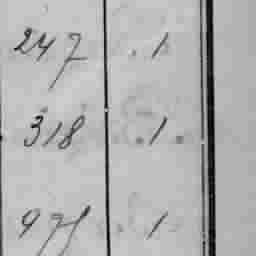 247 . 1
318 . 1 .
1